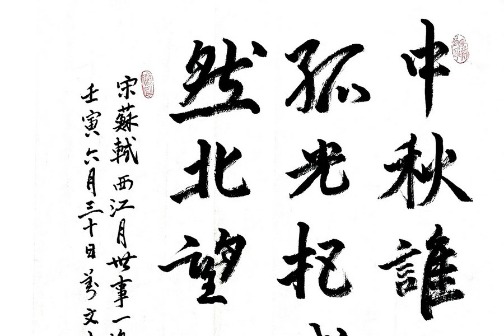 中秋誰
孤光把
然北望
宋蘇軾西江月世事一
壬寅六月三十日